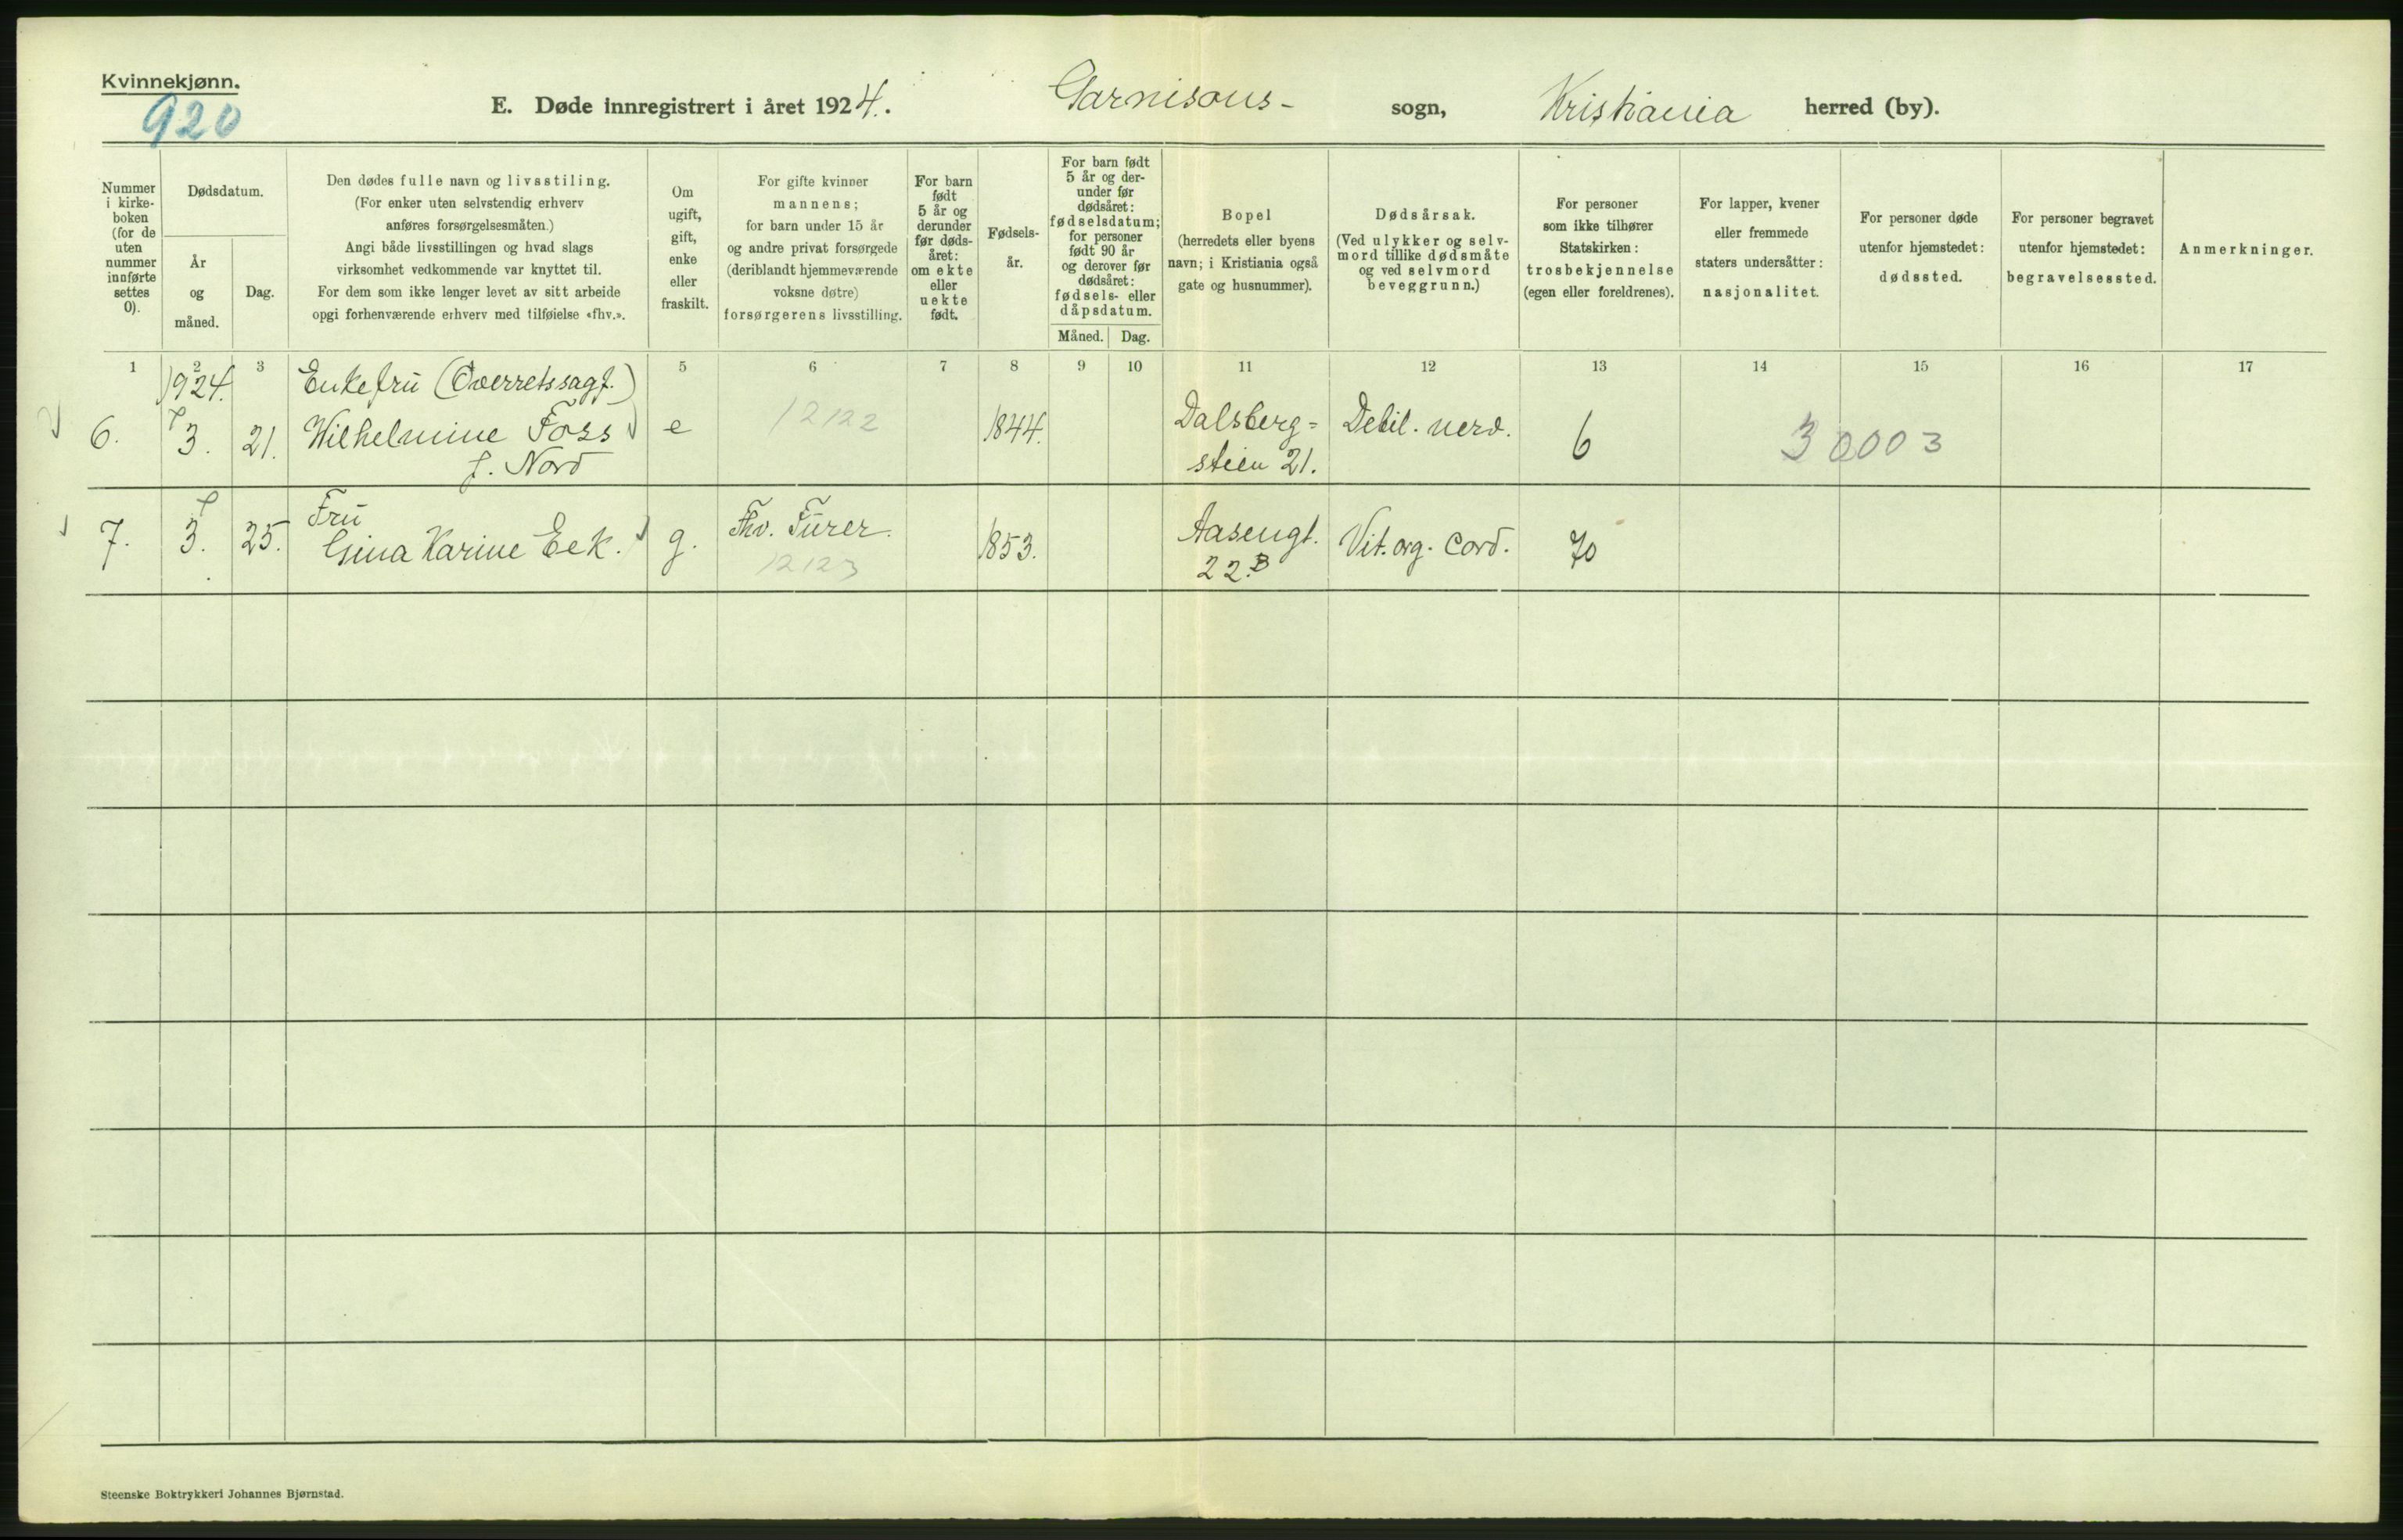 Kvinnekjønn.
920
E. Døde innregistrert i året 1924. Garnisons- sogn, Kristiania herred (by).
Nummer
i kirke-
boken
(for de
uten
nummer
innførte
settes
0).
Dødsdatum.
År
og
måned.
Dag.
Den dødes fulle navn og livsstiling.
(For enker uten selvstendig erhverv
anføres forsørgelsesmåten.)
Angi både livsstillingen og hvad slags
virksomhet vedkommende var knyttet til.
For dem som ikke lenger levet av sitt arbeide
opgi forhenværende erhverv med tilføielse «fhv.».
Om
ugift,
gift,
enke
eller
fraskilt.
For gifte kvinner
mannens;
for barn under 15 år
og andre privat forsørgede
(deriblandt hjemmeværende
voksne døtre)
forsørgerens livsstilling.
For barn
født
5 år og
derunder
før døds-
året:
om ekte
eller
uekte
født.
Fødsels-
år.
For barn født
5 år og der-
under før
dødsåret:
fødselsdatum;
for personer
født 90 år
og derover før
dødsåret:
fødsels- eller
dåpsdatum.
Måned. Dag.
Bopel
(herredets eller byens
navn; i Kristiania også
gate og husnummer).
Dødsårsak.
(Ved ulykker og selv-
mord tillike dødsmåte
og ved selvmord
beveggrunn.)
For personer
som ikke tilhører
Statskirken:
trosbekjennelse
(egen eller foreldrenes).
For lapper, kvener
eller fremmede
staters undersåtter:
nasjonalitet.
For personer døde
utenfor hjemstedet:
dødssted.
For personer begravet
utenfor hjemstedet:
begravelsessted.
Anmerkninger.
1 2 3 5 6 7 8 9 10 11 12 13 14 15 16 17
1924. Enkefru (Overretssagf.)
6. 3. 21. Wilhelmine Foss e 12122 1844. Dalsberg= Debil. nerv. 6 30003
f. Nord stien 21.
Fru Fhv. Furer.
7. 3. 25. Gina Karine Eek. g. 1853. Aasengt. Vit. org. Cord. 70
12123 22.B
Steenske Boktrykkeri Johannes Bjørnstad.